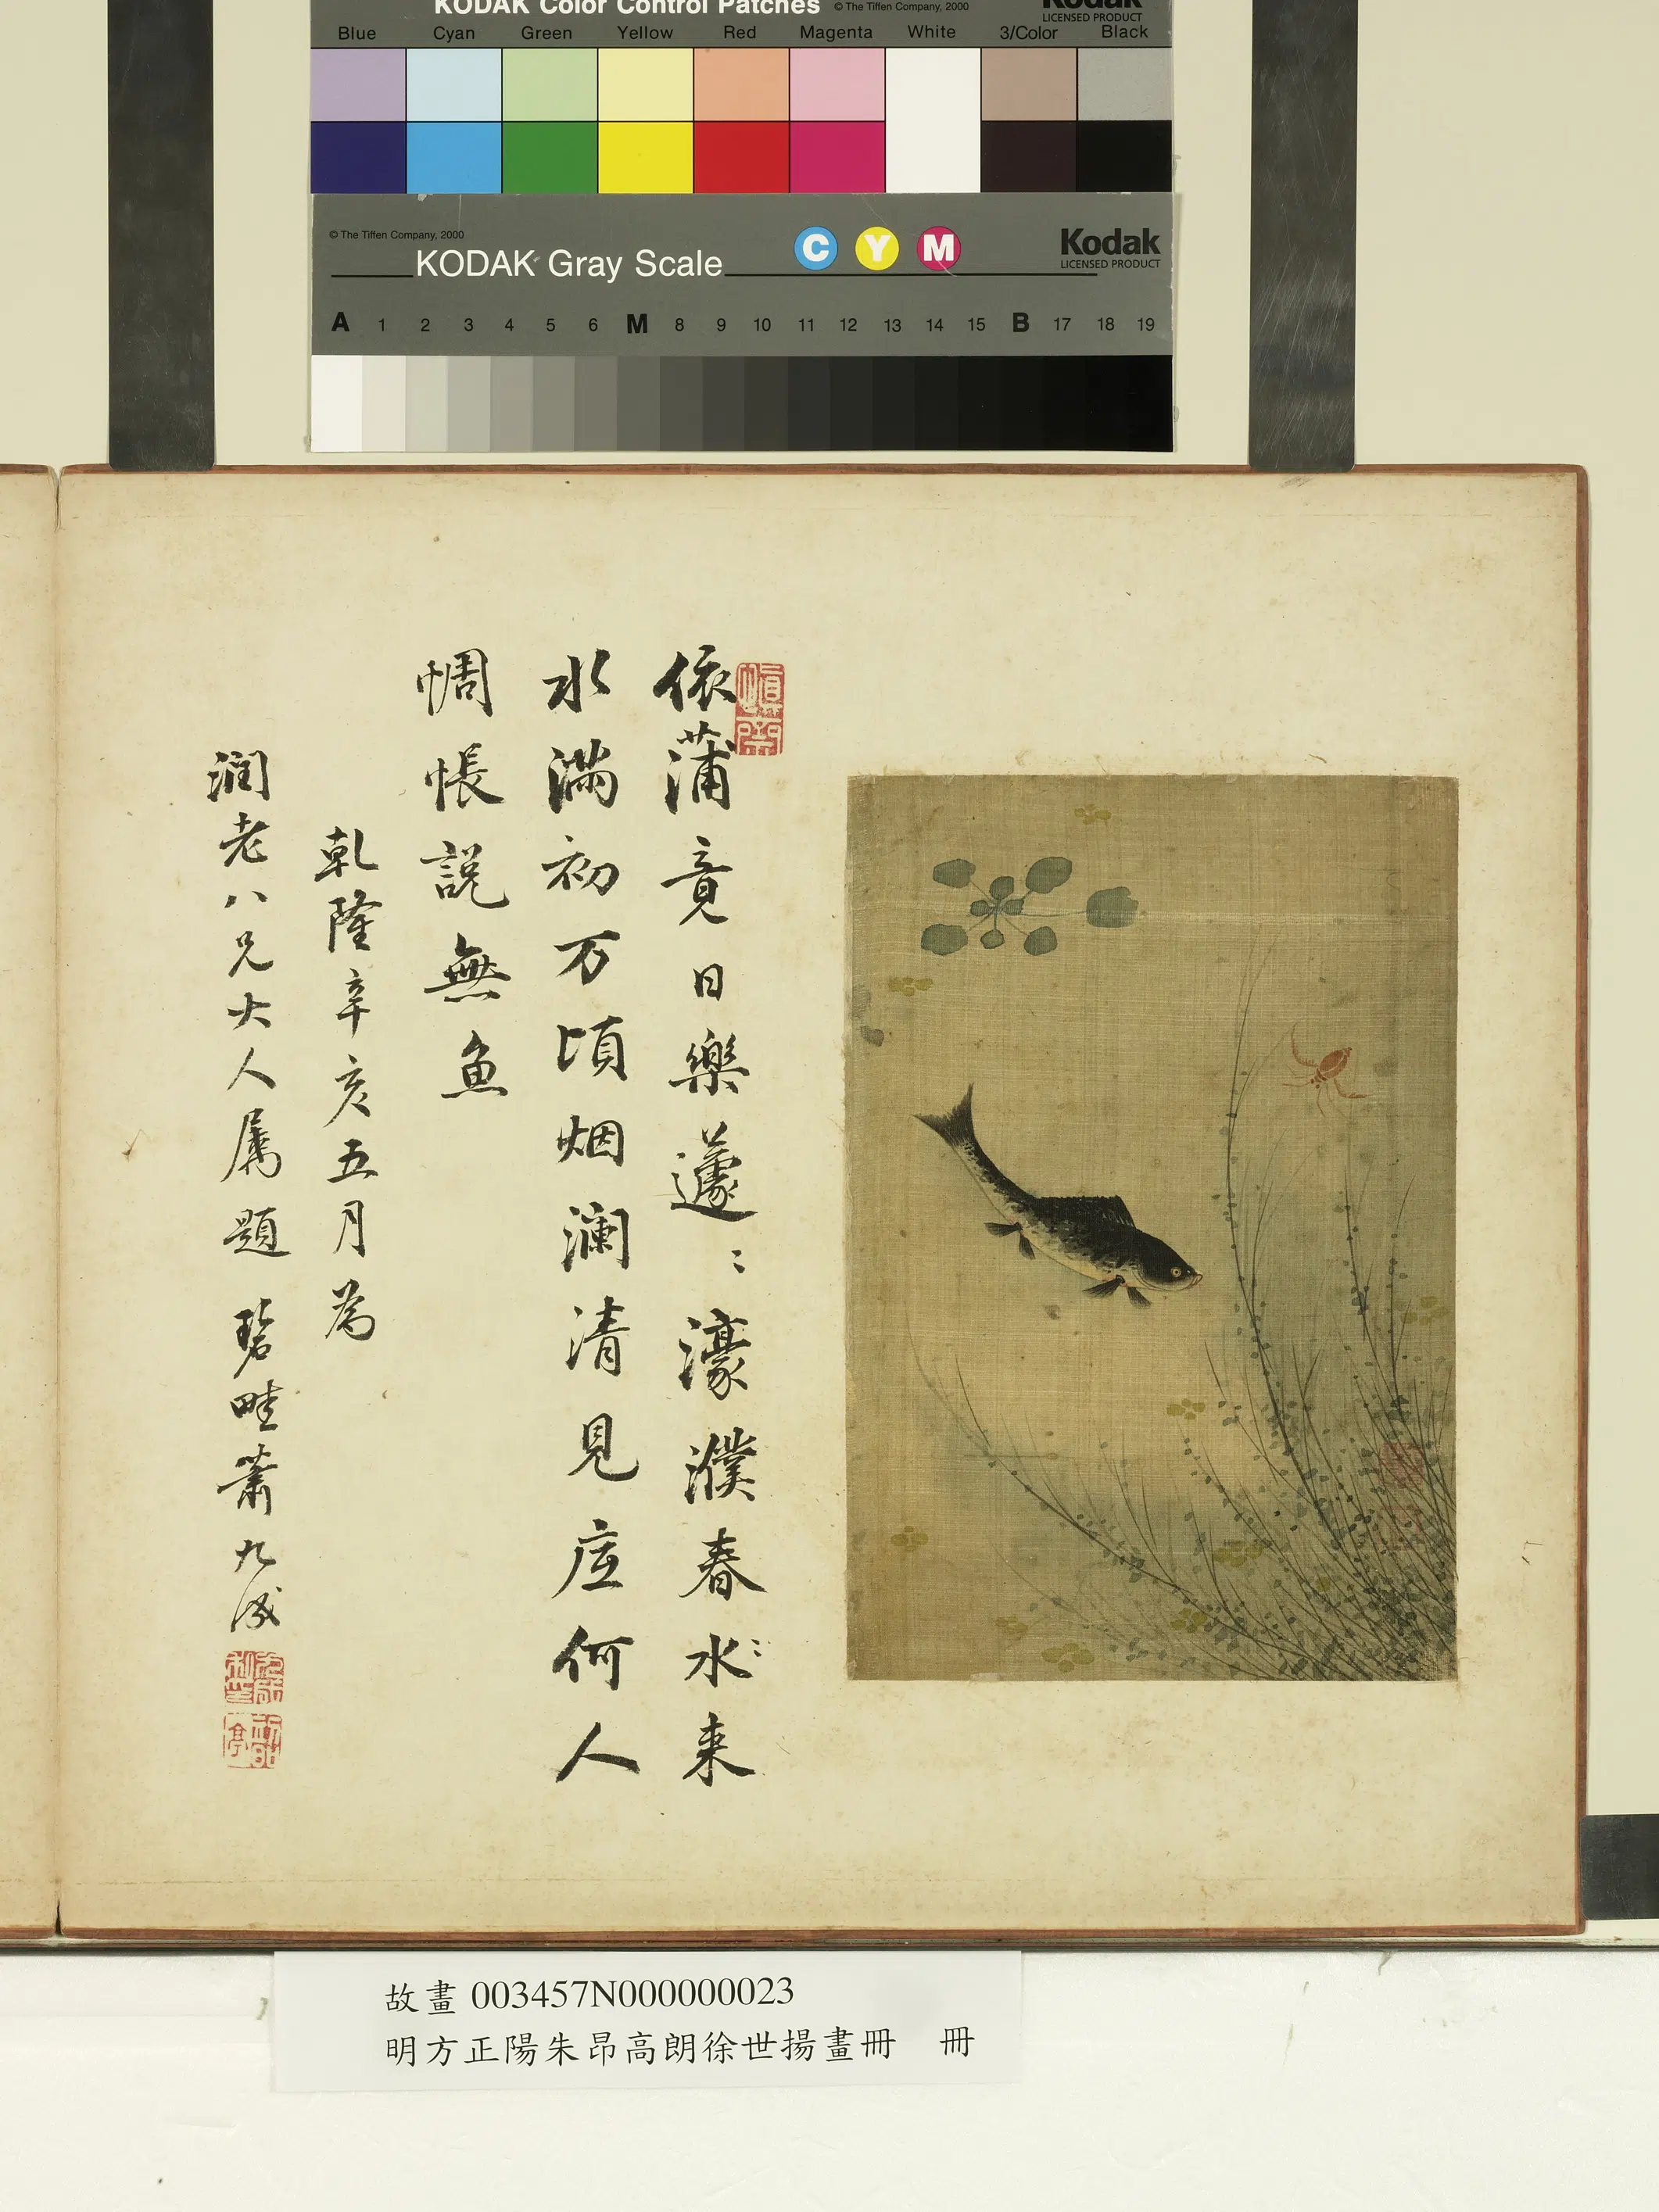 KODAK Color Control Patches © The Tiffen Company, 2000 Kodak
LICENSED PRODUCT
Blue Cyan Green Yellow Red Magenta White 3/Color Black
© The Tiffen Company, 2000
KODAK Gray Scale C Y M Kodak
LICENSED PRODUCT
A 1 2 3 4 5 6 M 8 9 10 11 12 13 14 15 B 17 18 19
依蒲竟日樂蘧〻濠濮春水〻来
水満初万頃烟澜清見底何人
惆悵説無魚
乾隆辛亥五月為
潤老八兄大人属題 碧畦蕭九成
故畫 003457N000000023
明方正陽朱昂高朗徐世揚畫冊 冊